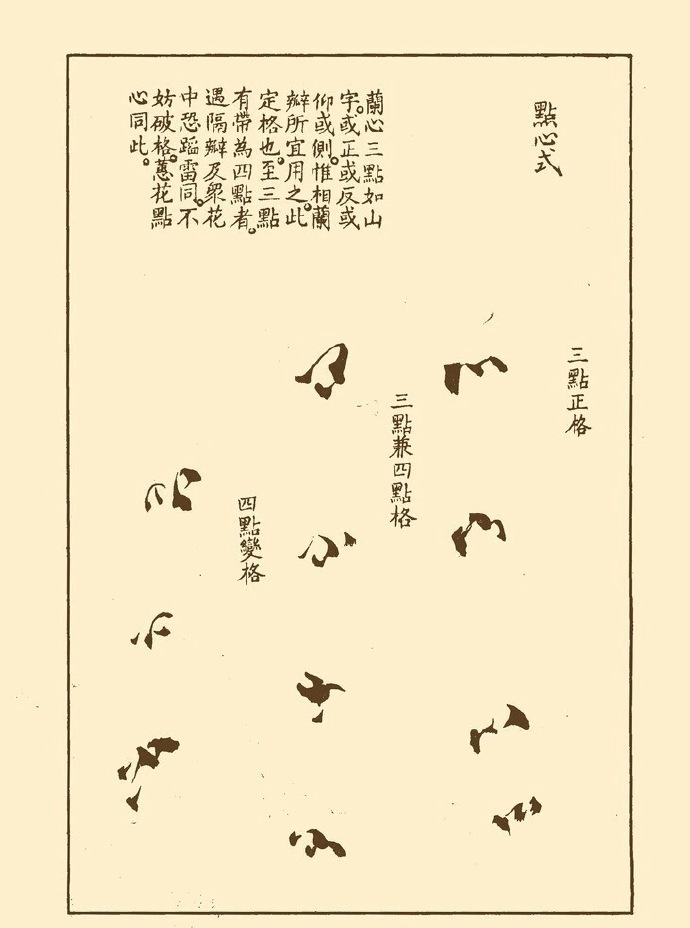 點心式
蘭心三點如山
字。或正或反或
仰或側。惟相蘭
瓣所宜用之。此
定格也。至三點
有帶為四點者。
遇隔瓣及眾花
中恐蹈雷同。不
妨破格。蕙花點
心同此。
三點正格
三點兼四點格
四點變格